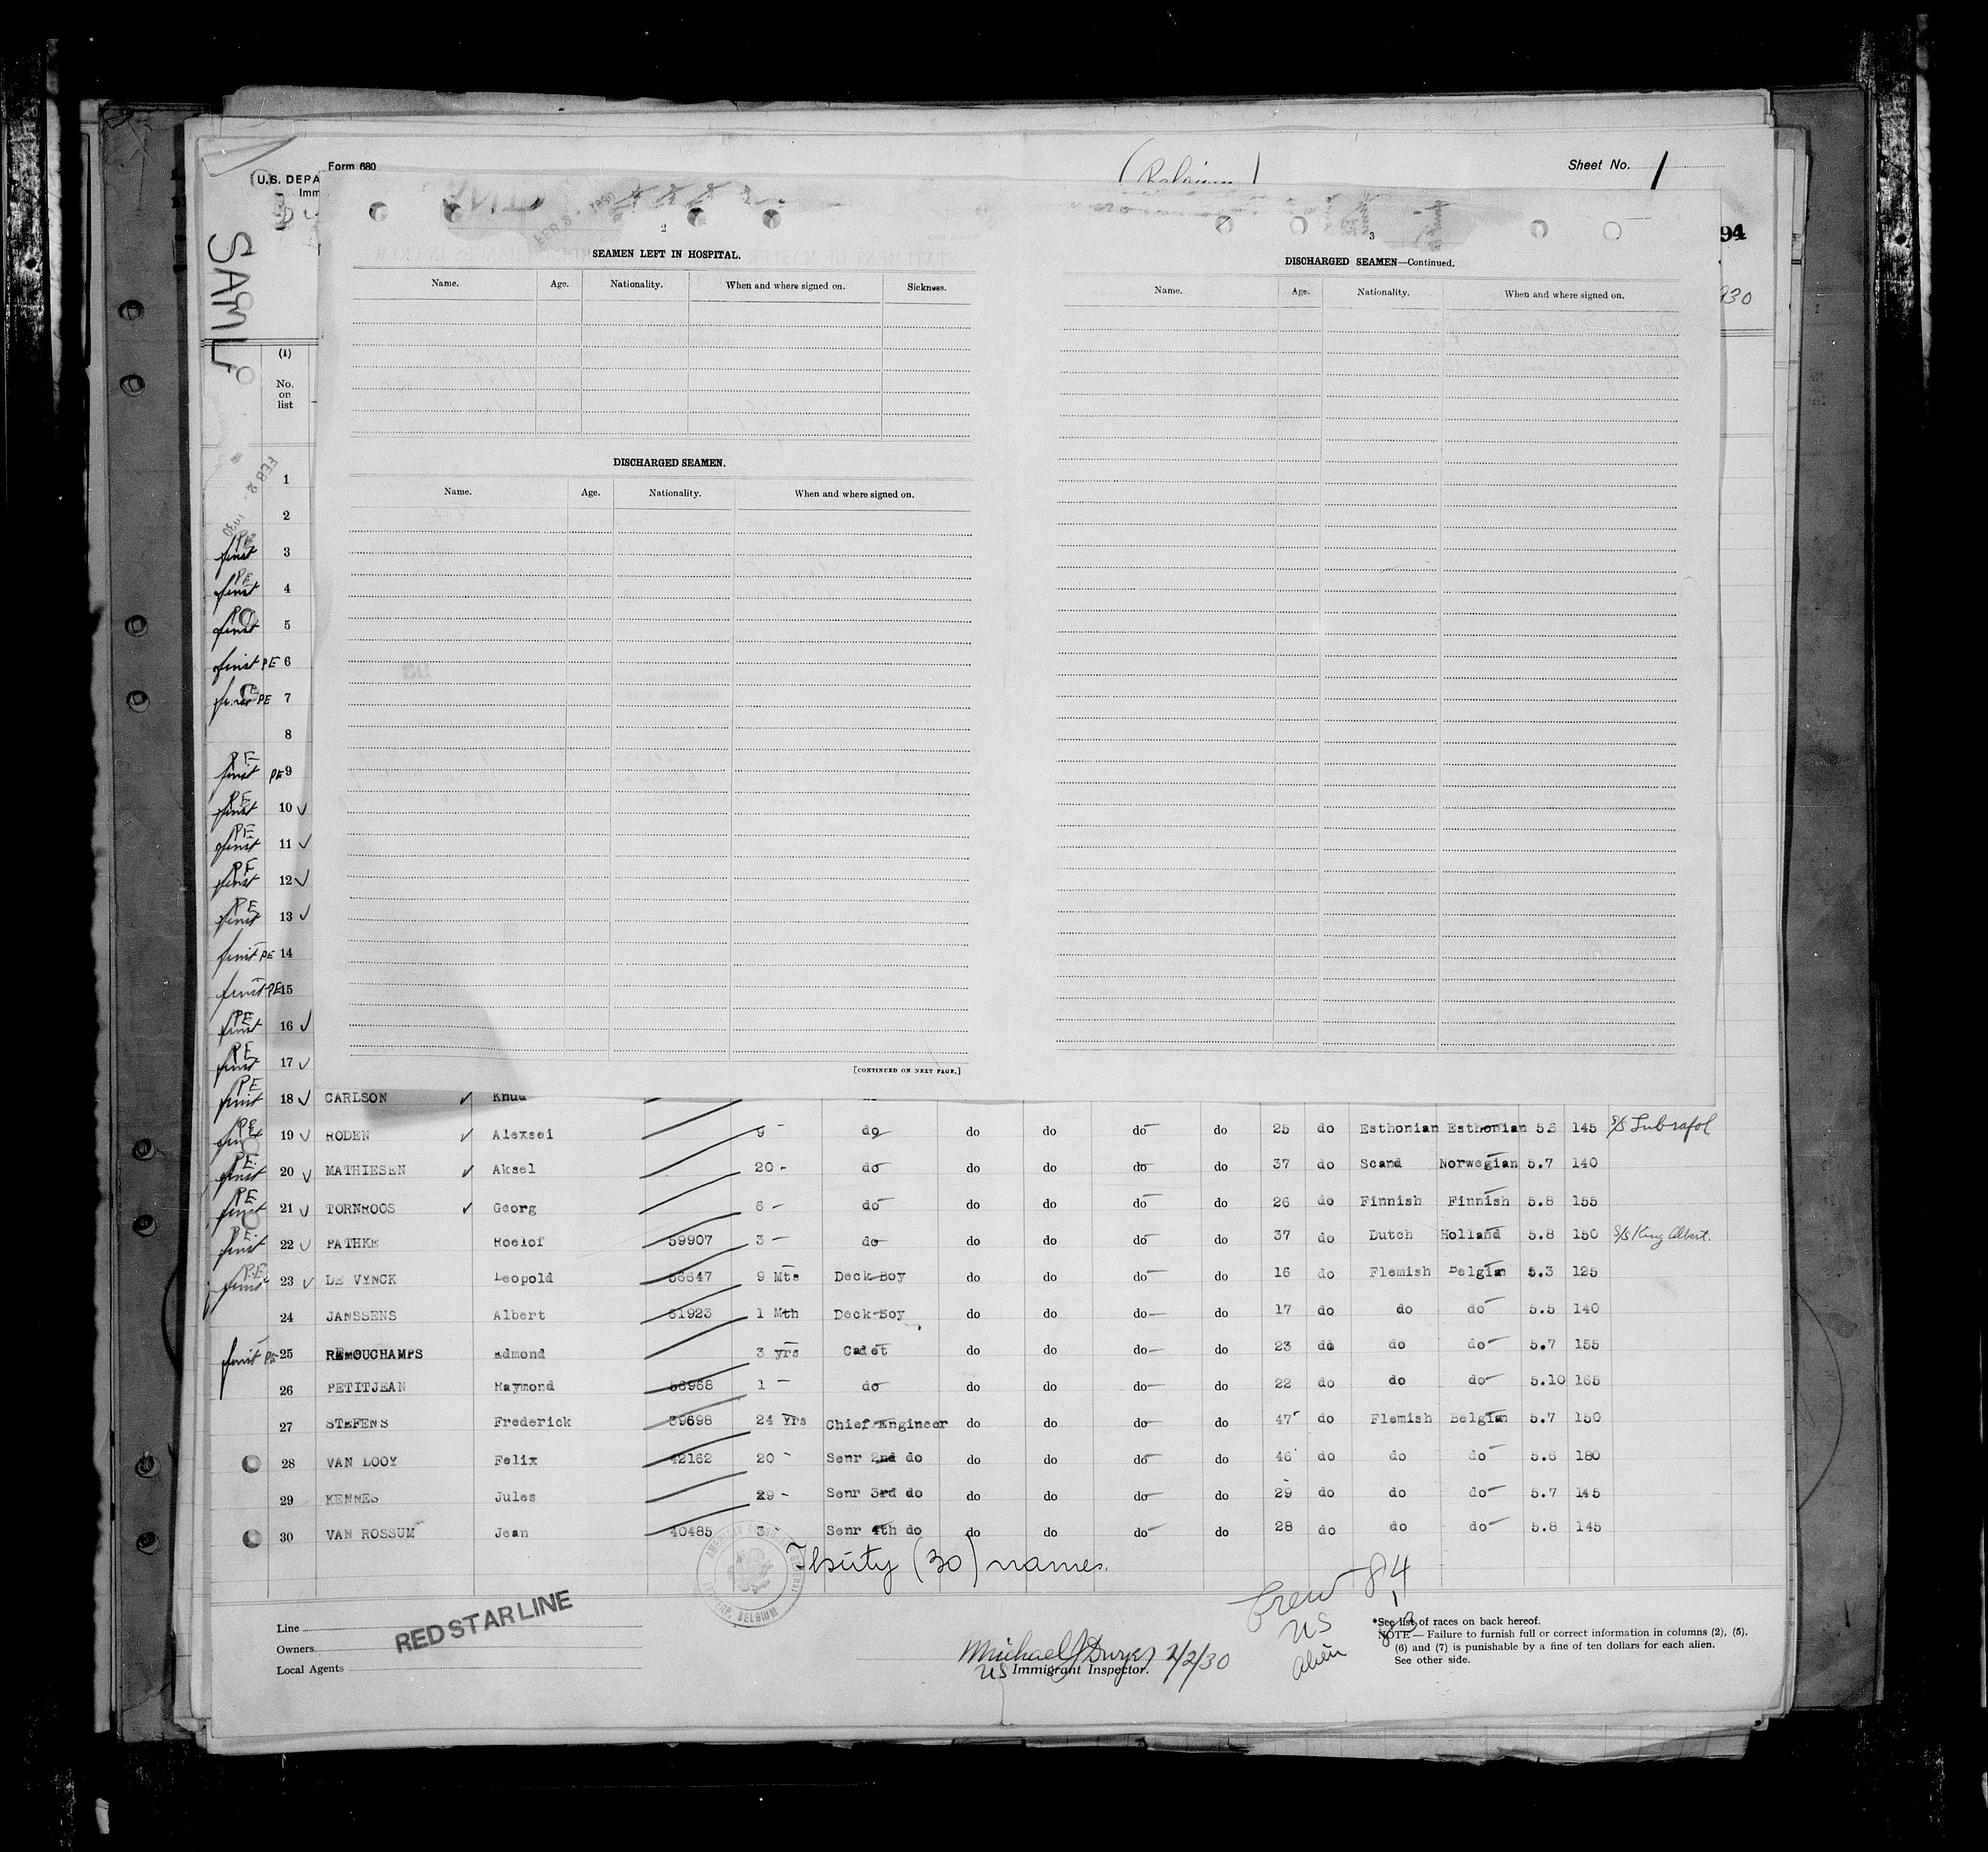 Form 680
Sheet No. 1
U.S. DEPA
Imm
94
930
SAML
(1)
No. on list
2
SEAMEN LEFT IN HOSPITAL.
Name. Age. Nationality. When and where signed on. Sickness.
DISCHARGED SEAMEN.
Name. Age. Nationality. When and where signed on.
[CONTINUED ON NEXT PAGE.]
3
DISCHARGED SEAMEN—Continued.
Name. Age. Nationality. When and where signed on.
FEB 2 1930
1
2
PE first 3
PE first 4
first 5
first PE 6
first PE 7
8
PE first PE 9
PE first 10 ✓
PE first 11 ✓
PE first 12 ✓
PE first 13 ✓
first PE 14
first PE 15
PE first 16 ✓
PE first 17 ✓
PE first 18 ✓ CARLSON ✓ Knud
PE first 19 ✓ RODEN ✓ Alexsei 9 - do do do do do 25 do Esthonian Esthonian 5.6 145
PE first 20 ✓ MATHIESEN ✓ Aksel 20 - do do do do do 37 do Scand Norwegian 5.7 140
PE first 21 ✓ TORNROOS ✓ Georg 6 - do do do do do 26 do Finnish Finnish 5.8 155
PE first 22 ✓ PATHKE Roelof 59907 3 - do do do do do 37 do Dutch Holland 5.8 150 S/S King Albert.
PE first 23 ✓ DE VYNCK Leopold 56647 9 Mts Deck Boy do do do do 16 do Flemish Belgian 5.3 125
24 JANSSENS Albert 61923 1 Mth Deck Boy do do do do 17 do do do 5.5 140
first PE 25 REMOUCHAMPS Edmond 3 yrs Cadet do do do do 23 do do do 5.7 155
26 PETITJEAN Raymond 56968 1 - do do do do do 22 do do do 5.10 165
27 STEFENS Frederick 39698 24 Yrs Chief Engineer do do do do 47 do Flemish Belgian 5.7 150
28 VAN LOOY Felix 42162 20 - Senr 2nd do do do do do 46 do do do 5.6 180
29 KENNES Jules 29 - Senr 3rd do do do do do 29 do do do 5.7 145
30 VAN ROSSUM Jean 40485 3 - Senr 4th do do do do do 28 do do do 5.8 145
Thirty (30) names.
Crew 84
US 1
Alien 83
Line
Owners
Local Agents
RED STAR LINE
Michael J Dwyer 2/2/30
US Immigrant Inspector.
*See list of races on back hereof.
NOTE.—Failure to furnish full or correct information in columns (2), (5),
(6) and (7) is punishable by a fine of ten dollars for each alien.
See other side.